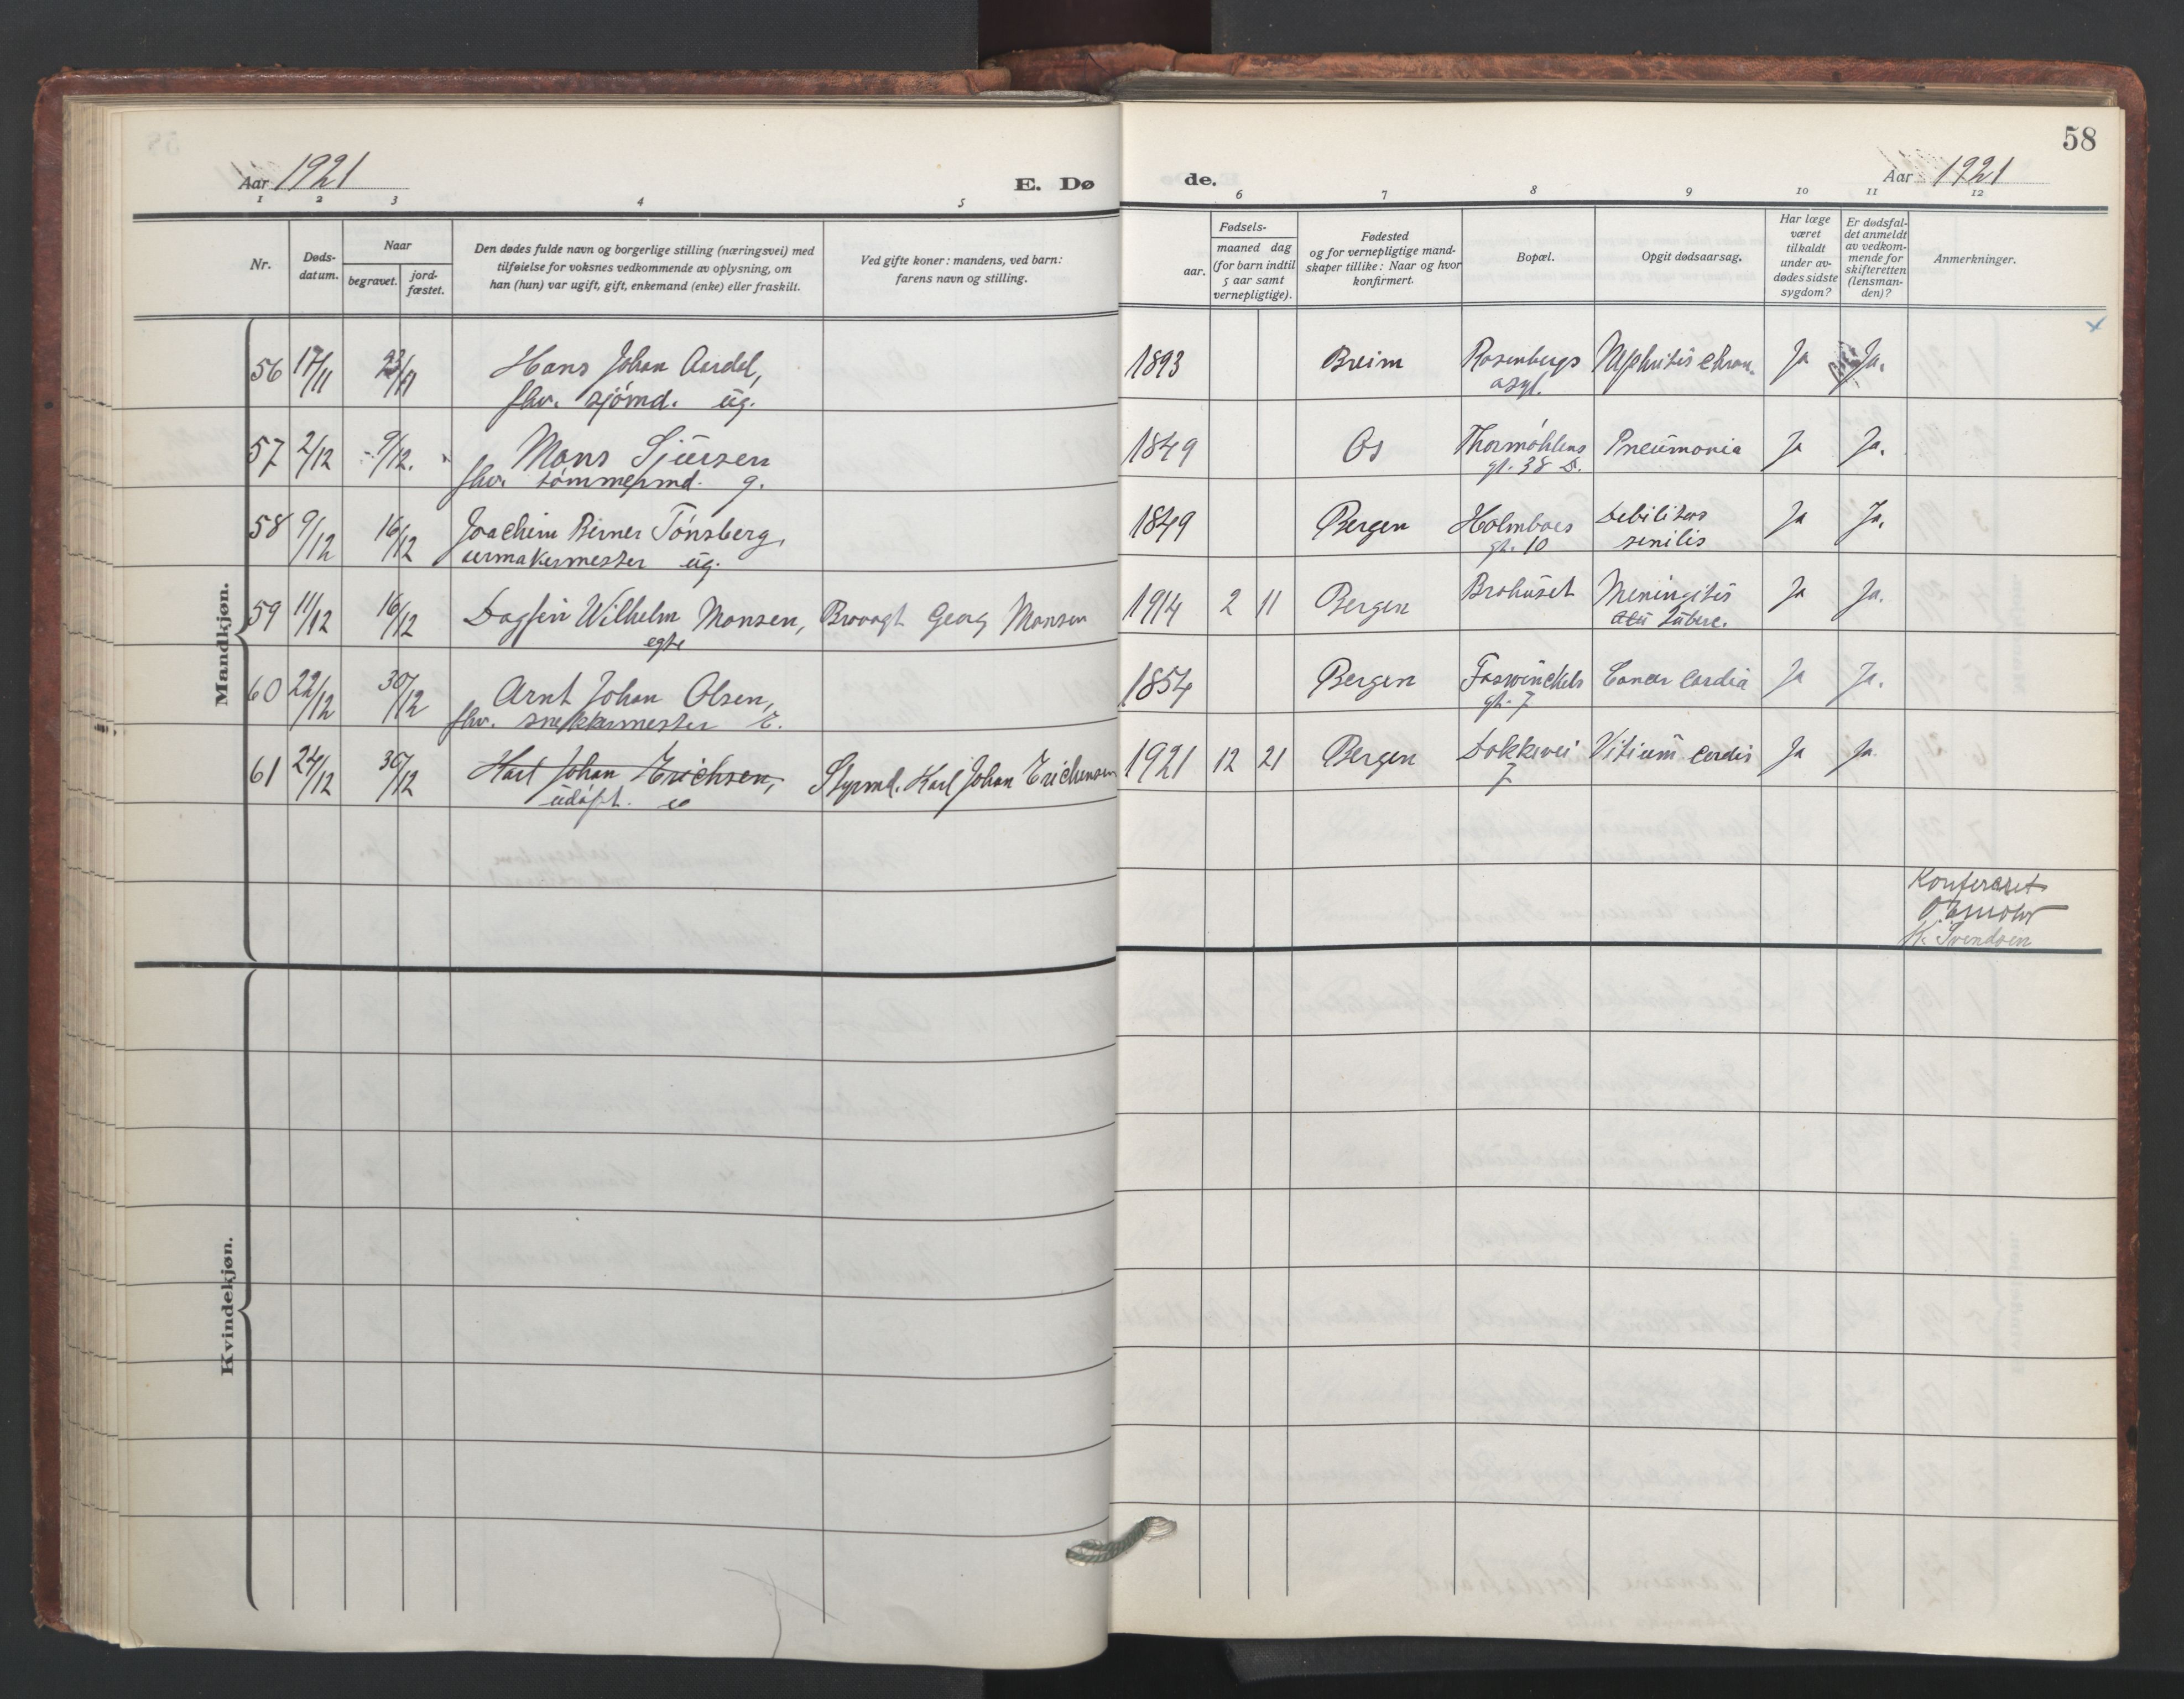 58
Aar 1921
E. Dø
de.
Aar 1921
1 2 3 4 5 6 7 8 9 10 11 12
Nr.
Døds-
datum.
Naar
begravet.
jord-
fæstet.
Den dødes fulde navn og borgerlige stilling (næringsvei) med
tilføielse for voksnes vedkommende av oplysning, om
han (hun) var ugift, gift, enkemand (enke) eller fraskilt.
Ved gifte koner: mandens, ved barn:
farens navn og stilling.
Fødsels-
aar.
maaned dag
(for barn indtil
5 aar samt
vernepligtige).
Fødested
og for vernepligtige mand-
skaper tillike: Naar og hvor
konfirmert.
Bopæl.
Opgit dødsaarsag.
Har læge
været
tilkaldt
under av-
dødes sidste
sygdom?
Er dødsfal-
det anmeldt
av vedkom-
mende for
skifteretten
(lensman-
den)?
Anmerkninger.
Mandkjøn.
56 17/11 23/11 Hans Johan Aardal, 1893 Breim Rosenbergs Nephritis chron. Ja Ja.
fhv. sjömd. ug. asyl.
57 2/12 9/12. Mons Sjursen 1849 Os Thormöhlens Pneumonia Ja Ja.
fhv. tömmermd. g. gt. 38 D.
58 9/12 16/12 Joachim Birner Tönsberg, 1849 Bergen Holmboes Debilitas Ja Ja.
urmakermester ug. gt. 10 senilis
59 11/12 16/12 Dagfin Wilhelm Monsen, Brovagt Georg Monsen 1914 2 11 Bergen Brohuset Meningitis Ja Ja.
egte tuberc.
60 22/12 30/12 Arnt Johan Olsen, 1854 Bergen Foswinckels Cancer cardia Ja Ja.
fhv. snekkermester E. gt. 7
61 24/12 30/12 Karl Johan Erichsen, Styrmd. Karl Johan Erichsen 1921 12 21 Bergen Dokkevei Vitium cordis Ja Ja.
udöpt. e 7
Konferert
K. Svendsen
Kvindekjøn.